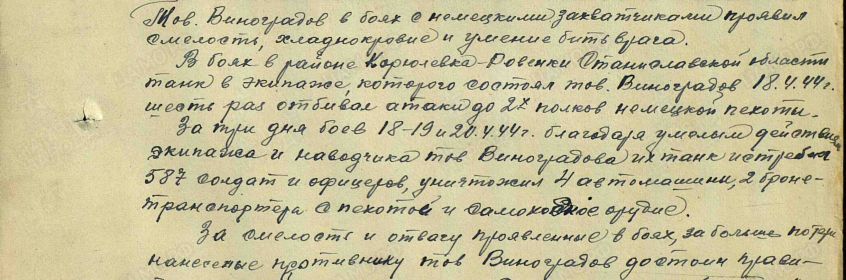 Тов. Виноградов в боях с немецкими захватчиками проявил
смелость, хладнокровие и умение бить врага.
В боях в районе Корюлевка-Ровенки Станиславской области
танк в экипаже, которого состоял тов. Виноградов 18.4.44г.
шесть раз отбивал атаки до 2х полков немецкой пехоты.
За три дня боев 18-19 и 20.4.44г. благодаря умелым действиям
экипажа и наводчика тов Виноградова их танк истребил
587 солдат и офицеров, уничтожил 4 автомашины, 2 броне-
транспортера с пехотой и самоходное орудие.
За смелость и отвагу проявленные в боях, за большие потери
нанесеные противнику тов Виноградов достоин прави-